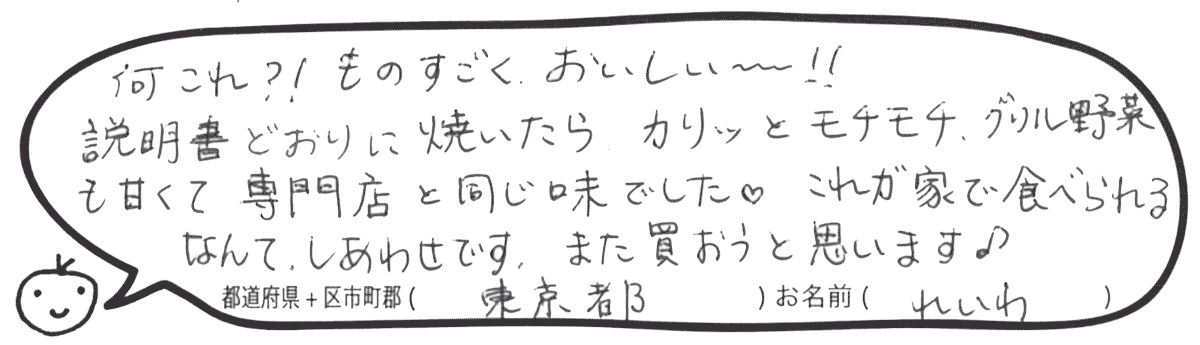 何これ?! ものすごく、おいしい〜〜!!
説明書どおりに焼いたら カリッと モチモチ、グリル野菜
も甘くて 専門店と同じ味でした♡ これが家で食べられる
なんて、しあわせです。また買おうと思います♪
都道府県+区市町郡( 東京都 )お名前( れいわ )